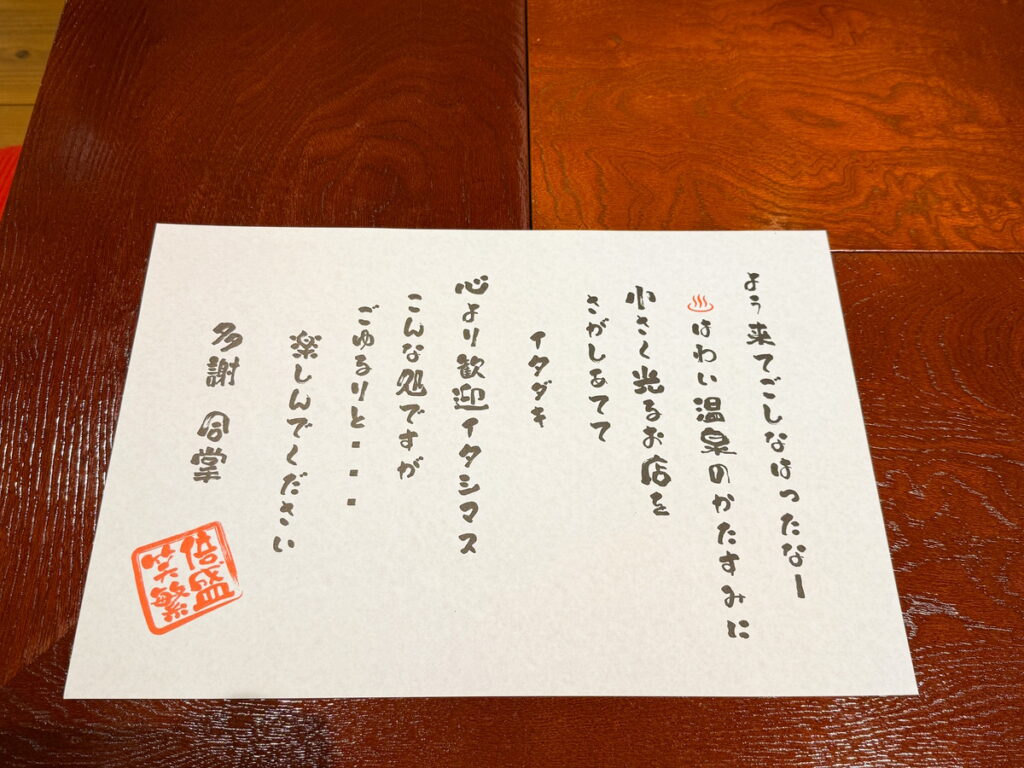 よう来てごしなはったなー
♨はわい温泉のかたすみに
小さく光るお店を
さがしあてて
イタダキ
心より歓迎イタシマス
こんな処ですが
ごゆるりと・・・
楽しんでください
多謝 合掌
倍盛
笑繁